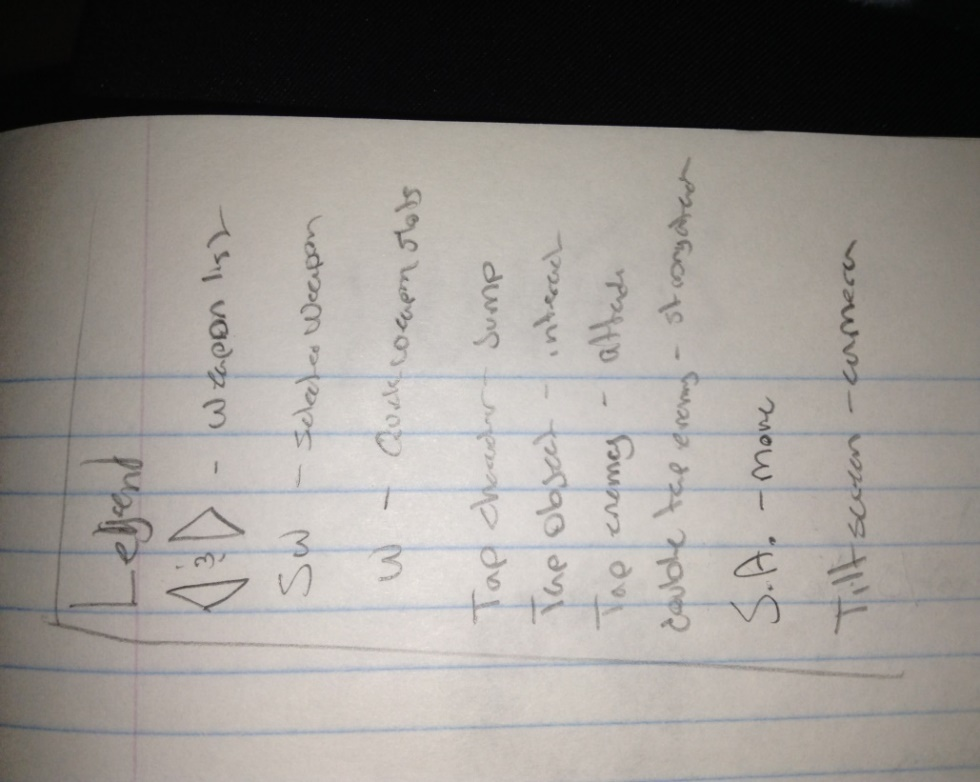 Legend
◁ 3 ▷ - weapon list
SW - selected Weapon
W - Quick weapon slots
Tap character - Jump
Tap object - interact
Tap enemy - attack
double tap enemy - strong attack
S.A. - move
Tilt screen - camera